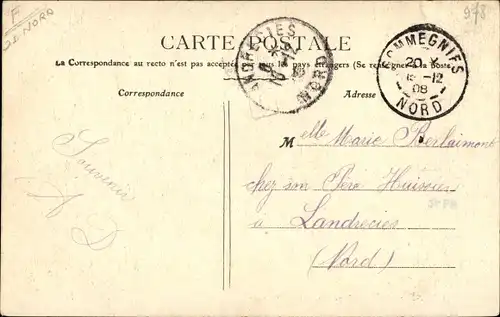 F
59 NORD
978
CARTE POSTALE
La Correspondance au recto n'est pas acceptée par tous les pays étrangers (Se renseigner à la Poste)
LANDRECIES
NORD
POMMEGNIES
20
15 -12
08
NORD
Correspondance
Adresse
Souvenir
A D
Melle Marie Berlaimont
chez son Père Huissier
à Landrecies
(Nord)